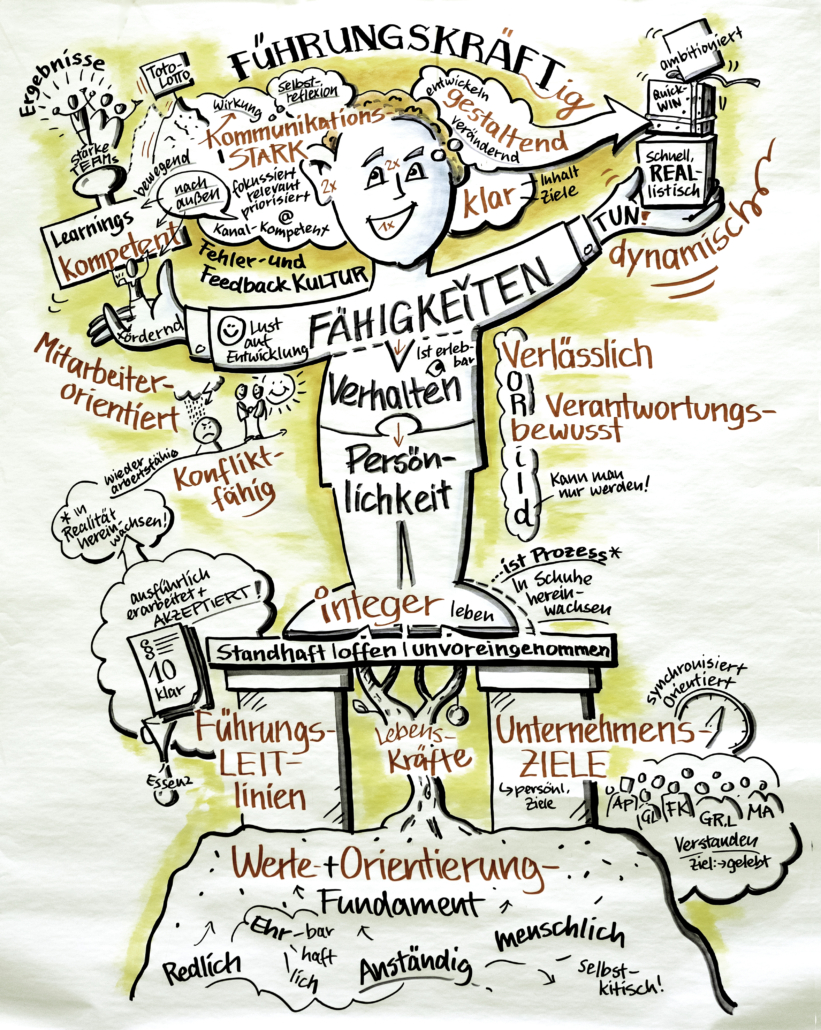 FÜHRUNGSKRÄFTig
Ergebnisse
Toto-
LOTTO
starke
TEAMs
bewegend
Wirkung
selbst-
reflexion
Kommunikations-
STARK
fokussiert
relevant
priorisiert
@
Kanal-Kompetenz
nach
außen
entwickeln
gestaltend
verändernd
ambitioniert
Quick-
WIN
Schnell,
REAL-
listisch
klar
Inhalt
Ziele
2x
2x
1x
TUN!
dynamisch
Learnings
kompetent
Fehler- und
Feedback KULTUR
fördernd
Lust
auf
Entwicklung
FÄHIGKEITEN
Ist erleb-
bar
Verhalten
Persön-
lichkeit
Mitarbeiter-
orientiert
Konflikt-
fähig
wieder
arbeitsfähig
* in
Realität
herein-
wachsen!
Verlässlich
VORbild
Verantwortungs-
bewusst
Kann man
nur werden!
...ist Prozess*
In Schuhe
herein-
wachsen
integer leben
Standhaft | offen | unvoreingenommen
ausführlich
erarbeitet +
AKZEPTIERT!
§
§
10
klar
Essenz
Führungs-
LEIT-
linien
Lebens-
Kräfte
Unternehmens-
ZIELE
↳ persönl.
Ziele
synchronisiert
Orientiert
AP GL FK GR.L MA
Verstanden
Ziel: → gelebt
Werte + Orientierung-
Fundament
Redlich
Ehr-bar
haft
lich
Anständig
menschlich
Selbst-
kitisch!